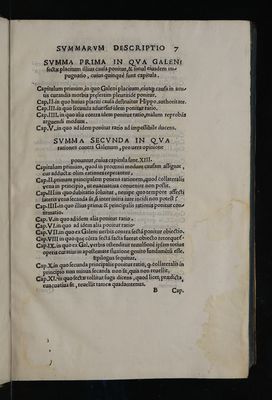 SVMMARVM DESCRIPTIO 7
SVMMA PRIMA IN QVA GALENI
secta placitum illius causa ponitur, & simul eiusdem im-
pugnatio, cuius quinque sunt capitula.
Capitulum primum, in quo Galeni placitum, eiusq; causa in
tus curandis morbis præsertim pleuritide ponitur.
Cap. II. in quo huius placiti causa destruitur Hippo. authoritate.
Cap. III. in quo secunda aduersus idem ponitur ratio.
Cap. IIII. in quo alia contra idem ponitur ratio, malum reprobãs
arguendi modum.
Cap. V. in quo ad idem ponitur ratio ad impossibile ducens.
SVMMA SECVNDA IN QVA
rationes contra Galenum, pro uera opinione
ponuntur, cuius capitula sunt XIII.
Capitulum primum, quod in procemii modum causam assignat,
cur adductæ olim rationes reperantur.
Cap. II. primam principalem ponens rationem, quod collateralis
uena in principio, ut euacuatiua conuenire non possit.
Cap. III. in quo dubitatio soluitur, nequid quo tempore affecti
lateris uena secanda sit, & inter initia dare incidi non potest?
Cap. IIII. in quo illius primæ & principalis rationis ponitur con-
firmatio.
Cap. V. in quo ad idem alia ponitur ratio.
Cap. VI. in quo ad idem alia ponitur ratio
Cap. VII. in quo ex Galeni uerbis contra sectã ponitur obiectio.
Cap. VIII. in quo quæ cõtra sectã facta fuerat obiectio retorquet
Cap. IX. in quo ex Gal. uerbis ostenditur reuulsionẽ ipsam totius
operæ cursum in apostemate fluxione genito fundamẽtũ esse.
Epilogus sequitur.
Cap. X. in quo secunda principalis ponitur ratio, q collateralis in
principio non minus secanda non sit, quia non reuellit.
Cap. XI. in quo sectæ tollitur fuga dicens, quod licet, prædicta,
euacuatiua sit, reuellit tamen quadantenus.
B Cap.